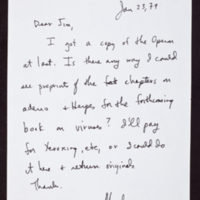 Jan 23, 79
Dear Jim,
I got a copy of the Operon
at last. Is there any way I could
see preprints of the fact chapters on
adeno + Herpes for the forthcoming
book on viruses? I'll pay
for Xeroxing, etc, or I could do
it here + return originals
Thanks.